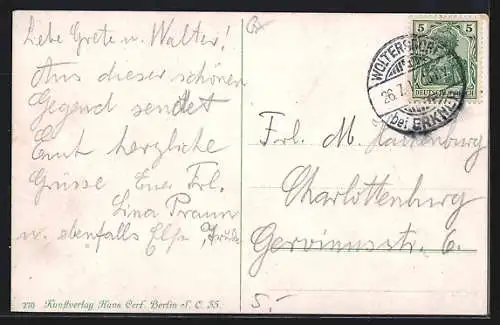 Liebe Grete u. Walter!
Aus dieser schönen
Gegend sendet
Euch herzliche
Grüsse Eure Frl.
Lina Braun
u. ebenfalls Else
Frl. M.
Charlottenburg
Gervinusstr. 6.
5.-
5 5
DEUTSCHES REICH
WOLTERSDORF
26.7.
(bei ERKNER)
270 Kunstverlag Hans Cerf. Berlin S. O. 35.